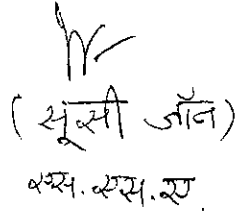 (सूसी जॉन)
एस.एस.ए.